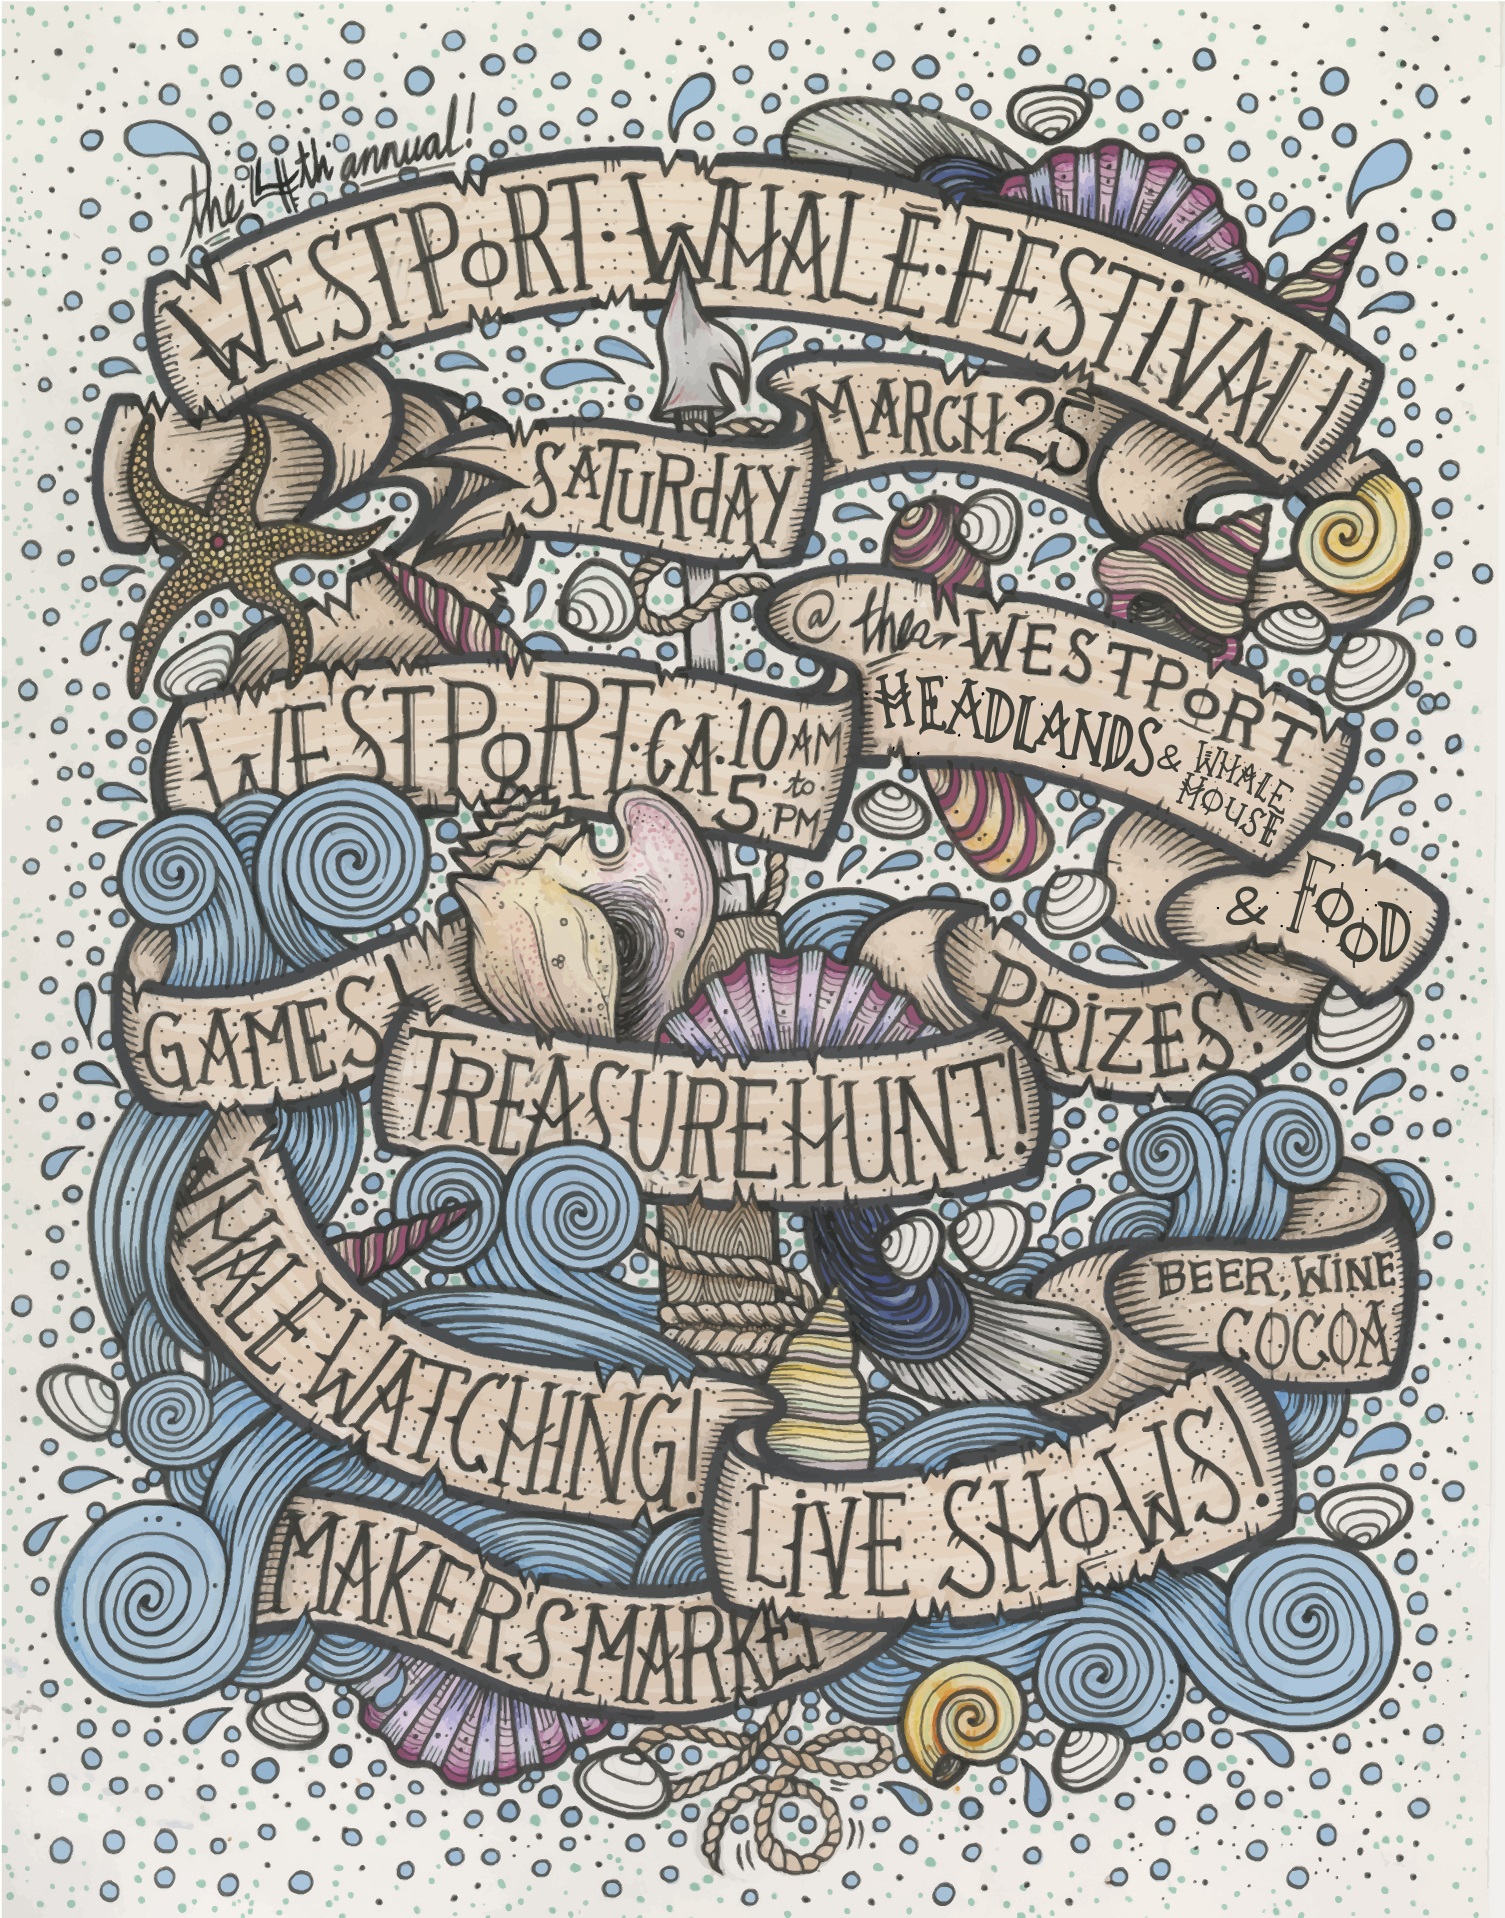 the 4th annual!
WESTPORT·WHALE·FESTiVAL!
SATURdAY
MARCH 25
@ the WESTPORT
HEADLANDS & WHALE
HOUSE
WESTPORT·CA·10 AM
to
5 PM
& FOOD
GAMES!
TREASURE HUNT!
PRiZES!
WHALE WATCHING!
BEER, WINE
COCOA
LiVE SHOWS!
MAKER'S MARKET